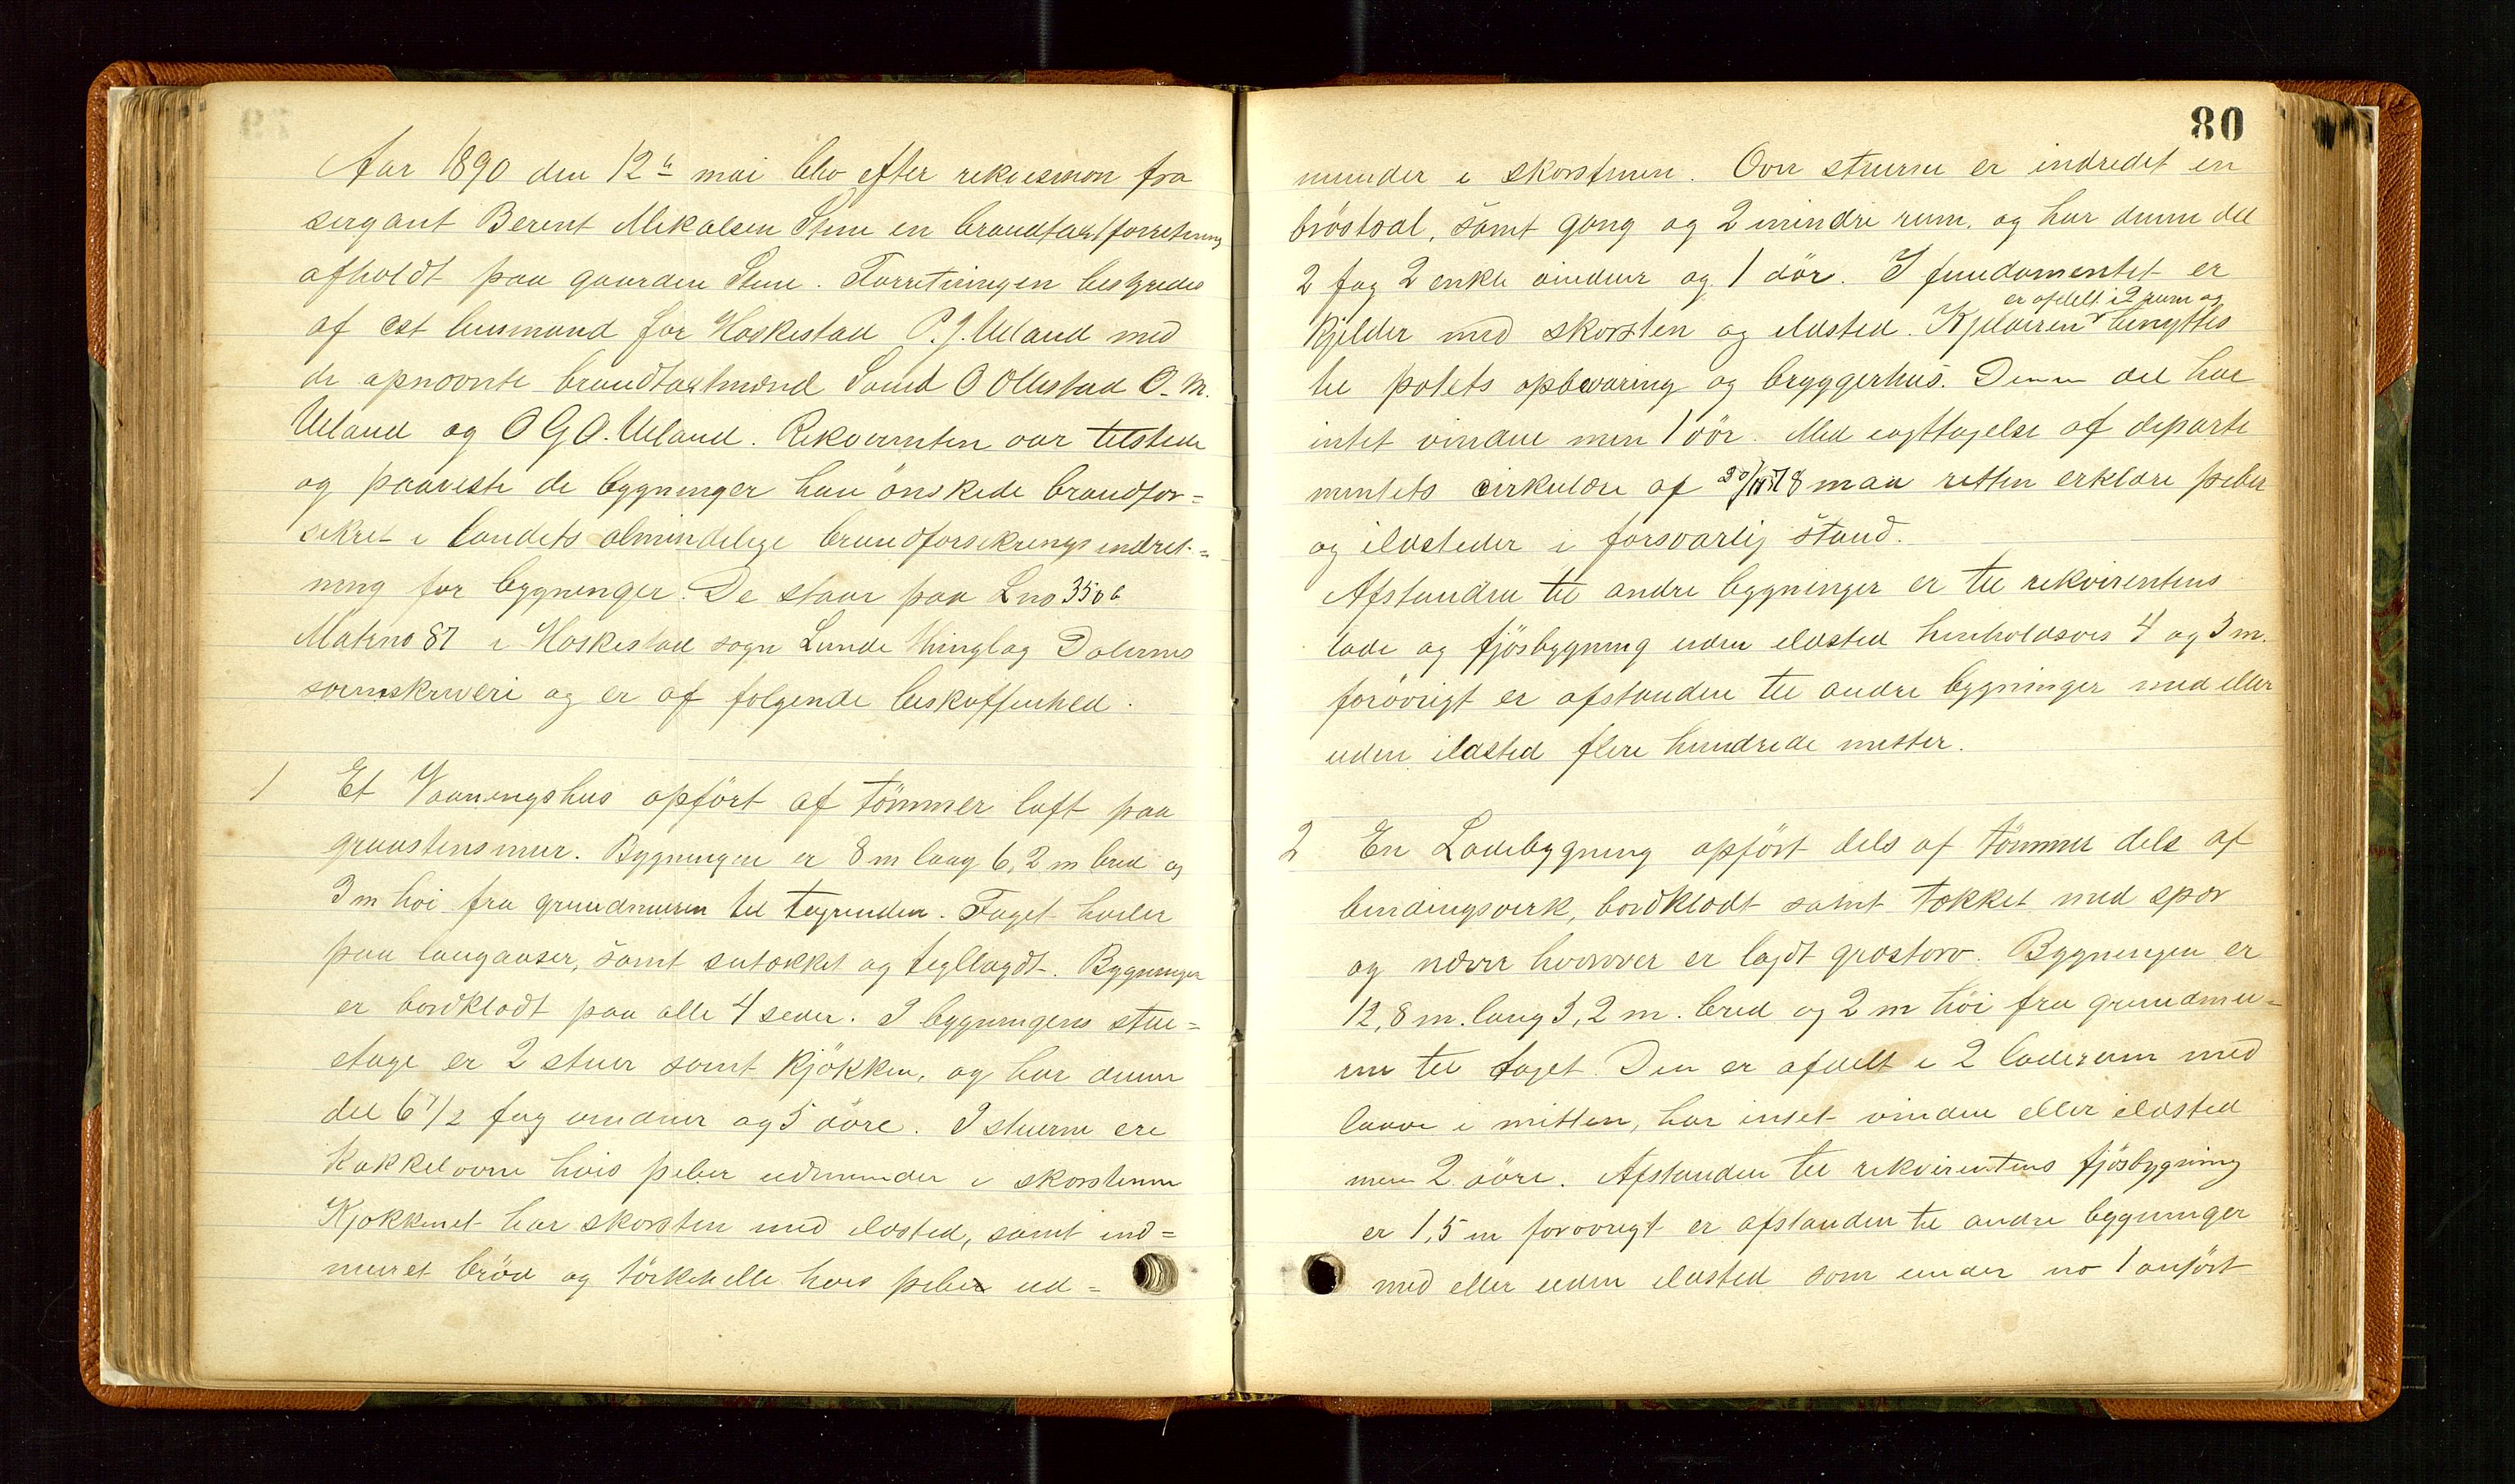 Aar 1890 den 12te mai blev efter rekvisision fra
sergant Berent Mikalsen Stene en brandtakstforretning
afholdt paa gaarden Stene. Forretningen bestyredes
af cst lensmand for Heskestad P. J. Ueland med
de opnævnte brandtakstmænd Tonnes O Ollestad O. M.
Ueland og O G O. Ueland. Rekvirenten var tilstede
og paaviste de bygninger han önskede brandfor=
sikret i landets almindelige brandforsikrings indret=
ning for bygninger. De staar paa Lno 350 b
Matrno 87 i Heskestad sogn Lunde thinglag Dalernes
sorenskriveri og er af følgende beskaffenhed.
1 Et Vaaningshus opfört af tömmer laft paa
graastensmur. Bygningen er 8 m lang 6,2 m bred og
3 m høi fra grundmuren til tagrenden. Taget hviler
paa langaaser, samt sutækket og tegllagdt. Bygningen
er bordklædt paa alle 4 sider. I bygningens stue=
etage er 2 stuer samt kjökken, og har denne
del 6 1/2 fag vinduer og 5 döre. I stuerne ere
Kakkelovne hvis piber udmunder i skorstenen
Kjøkkenet har skorsten med ildsted, samt ind=
muret bröd og törkehelle hvis piber ud=
80
munder i skorstenen. Over stuerne er indredet en
bröstsal, samt gang og 2 mindre rum. og har denne del
2 fag 2 enkle vinduer og 1 dör. I fundamentet er
er afdelt i 2 rum og
kjelder med skorsten og ildsted. Kjelderen benyttes
til potets opbevaring og bryggerhus. Denne del har
intet vindue men 1 dör. Med iagttagelse af departe
mentets cirkulære af 78 maa retten erklære piber
og ildsteder i forsvarlig stand.
Afstanden til andre bygninger er til rekvirentens
lade og fjösbygning uden ildsted henholdsvis 4 og 3 m.
forövrigt er afstanden til andre bygninger med eller
uden ildsted flere hundrede metter.
2 En Ladebygning opfört dels af tömmer dels af
bindingsverk, bordklædt samt tækket med spær
og næver hvorover er lagdt græstorv. Bygningen er
12,8 m. lang 3,2 m. bred og 2 m höi fra grundmu=
ren til taget. Den er afdelt i 2 laderum med
laave i mitten, har intet vindue eller ildsted
men 2 döre. Afstanden til rekvirentens fjösbygning
er 1,5 m forøvrigt er afstanden til andre bygninger
med eller uden ildsted som under no 1 anfört